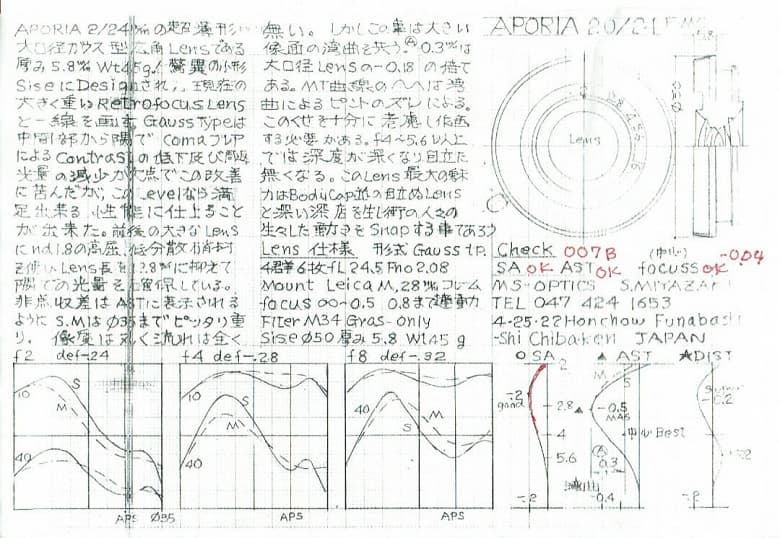 APORIA 2/24㎜の超薄形い
大口径ガウス型広角Lensである
厚み5.8㎜ Wt45g.! 驚異の小形
SiseにDesignされ,
大きく重いRetrofocus Lens
と一線を画す。Gauss Typeは
中間部から隅でComaフレア
によるContrastの低下及び周辺
光量の減少が欠点でこの改善
に苦んだが,このLevelなら満
足出来る 性能に仕上ること
が出来た。前後の大きなLens
にnd1.8の高屈,低分散硝材
を使いLens長を12.8㎜に抑えて
隅での光量を確保している。
非点収差はASTに表示される
ように S.MはΦ35までピッタリ重
り, 像質は丸く流れは全く
無い。しかしこの事は大きい
像面の湾曲を失う。Ⓐ0.3㎜は
大口径Lensの-0.18の倍で
ある。MT曲線のへへは湾
曲によるピントのズレによる。
このくせを十分に考慮し作画
する必要がある。f4~5.6以上
では深度が深くなり目立た
無くなる。このLens最大の魅
力はBodyCap並の目立ぬLens
と深い深度を生し街の人々の
生々した動きをSnapする事であろう
Lens 仕様 形式 Gauss tp.
4群6枚 fL 24.5 Fno 2.08
Mount Leica M, 28㎜フレーム
focus ∞~0.5 0.8まで連動
Filter M34 Gras-only
Sise Φ50 厚み 5.8 Wt 45 g
APORIA 20/2
5.8
Φ50
2.8 4 5.6 8
Lens
Check 007B (中心) -0.04
SA OK AST OK focuss OK
MS-OPTICS S.MIYAZAKI
TEL 047 424 1653
4-25-22 Honchow Funabas
-Shi Chibaken JAPAN
f2 def-.24
S
M
10
40
APS Φ35
f4 def-.28
S
M
10
40
APS
f8 def-.32
S
M
10
40
APS
○SA ▲AST ★DIST
-.2
gond
2
2.8
4
5.6
8
-.2
M
S
-0.5
MAS
中心Best
Ⓐ
0.3
-0.4
-0.2
-.2